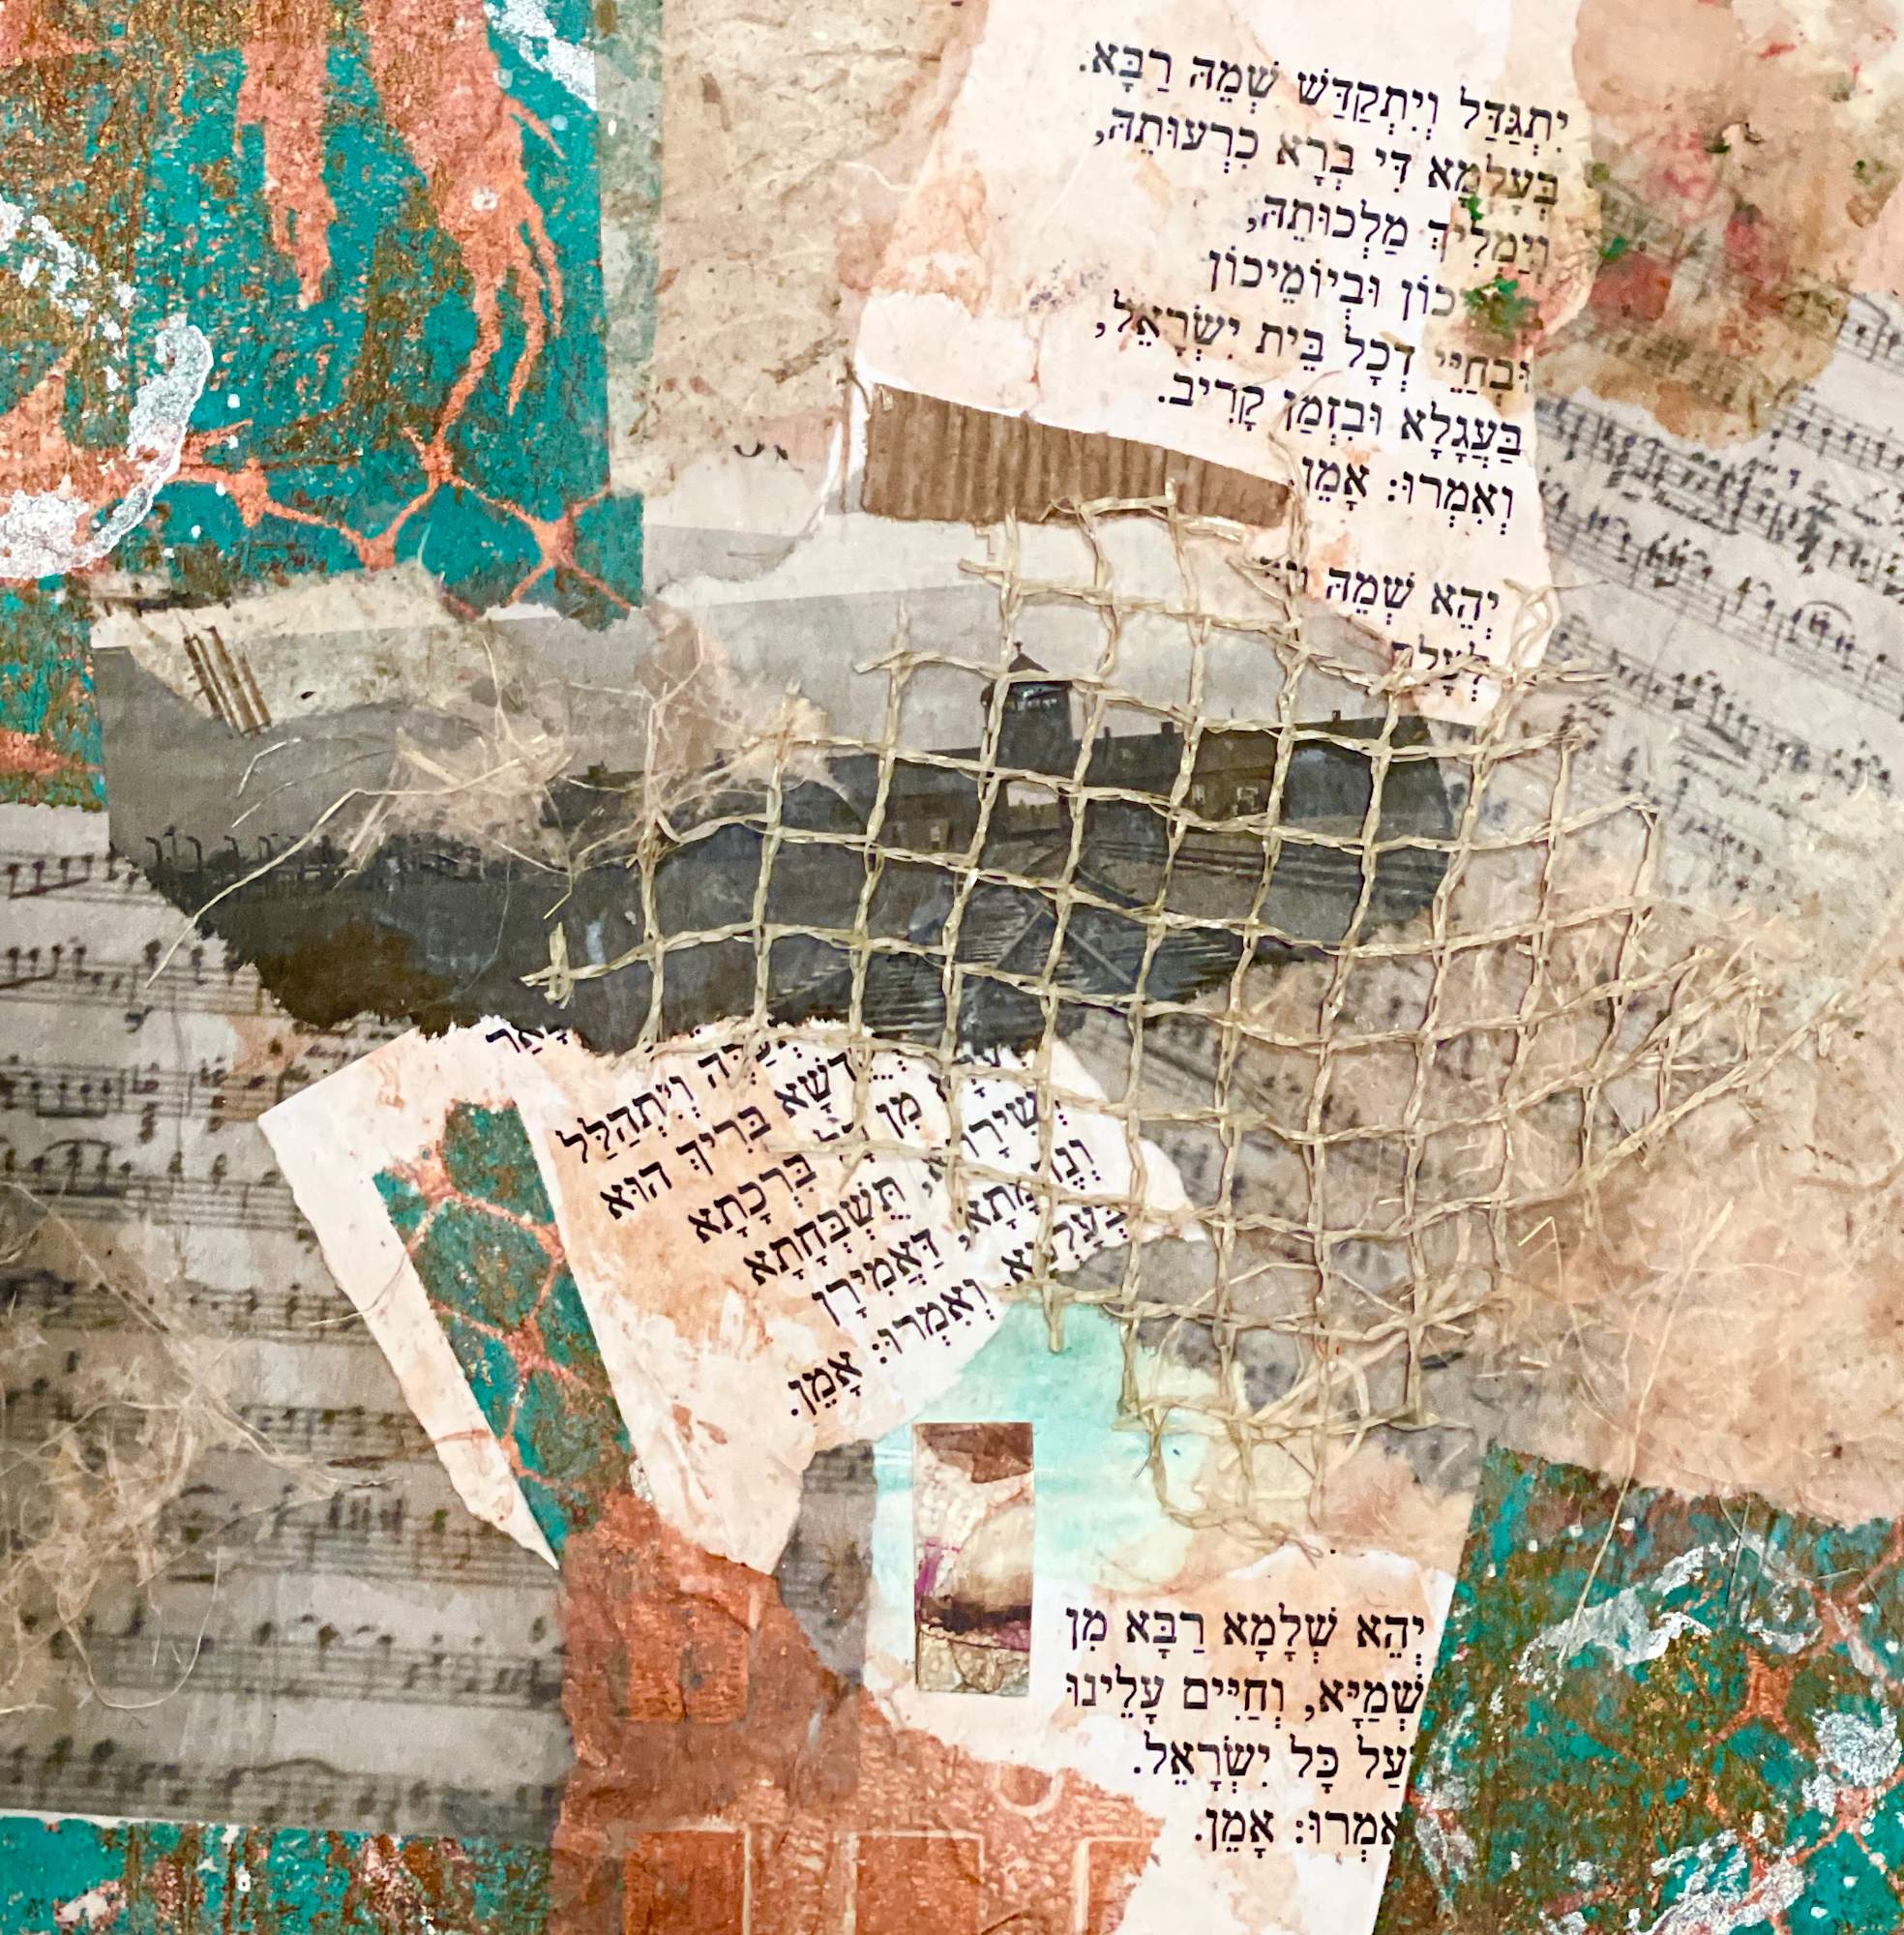 יִתְגַּדַּל וְיִתְקַדַּשׁ שְׁמֵהּ רַבָּא.
בְּעָלְמָא דִּי בְרָא כִרְעוּתֵהּ,
וְיַמְלִיךְ מַלְכוּתֵהּ,
כוֹן וּבְיוֹמֵיכוֹן
וּבְחַיֵּי דְכָל בֵּית יִשְׂרָאֵל,
בַּעֲגָלָא וּבִזְמַן קָרִיב.
וְאִמְרוּ: אָמֵן
יְהֵא שְׁמֵהּ
וְיִתְהַלַּל
בְּרִיךְ הוּא
מִן בִּרְכָתָא
תֻּשְׁבְּחָתָא
דַּאֲמִירָן
וְאִמְרוּ: אָמֵן.
יְהֵא שְׁלָמָא רַבָּא מִן
שְׁמַיָּא, וְחַיִּים עָלֵינוּ
עַל כָּל יִשְׂרָאֵל.
אִמְרוּ: אָמֵן.